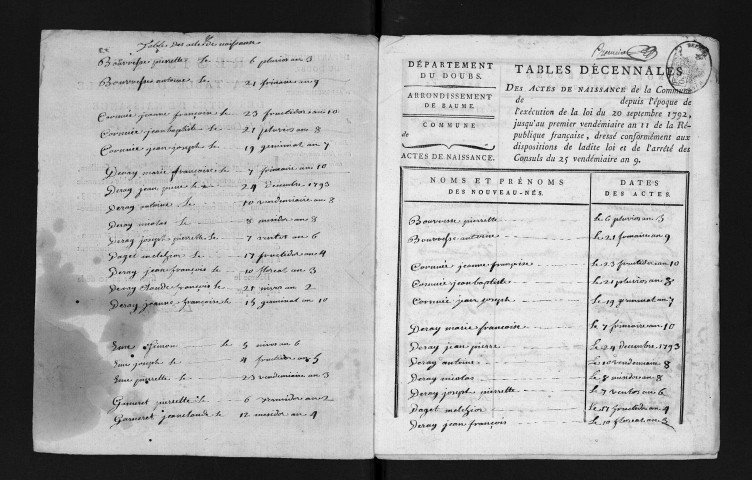 Table des actes de naissance
Bouvresse pierrette le 6 pluvios an 3
Bouvresse antoine le 21 frimaire an 9
Cornuée jeanne françoise le 23 fructidor an 10
Cornuée jean baptiste le 21 pluvios an 8
Cornuée jean joseph le 19 germinal an 7
Deray marie françoise le 7 frimaire an 10
Deray jean pierre le 24 decembre 1793
Deray antoine le 10 vendemiaire an 8
Deray nicolas le 8 messidor an 8
Deray joseph pierrette le 7 ventos an 6
Daget melchior le 17 fructidor an 4
Deray jean françois le 10 floreal an 3
Deray Claude françois le 21 nivos an 2
Deray jeanne françoise le 15 germinal an 10
le 5 nivos an 6
joseph le 4 fructidor an 5
pierrette le 23 vendemiaire an 3
pierrette le 6 an 2
le 12 messidor an 4
DÉPARTEMENT
DU DOUBS.
ARRONDISSEMENT
DE BAUME.
COMMUNE
de
ACTES DE NAISSANCE.
TABLES DÉCENNALES
DES ACTES DE NAISSANCE de la Commune
de depuis l'époque de
l'exécution de la loi du 20 septembre 1792,
jusqu'au premier vendémiaire an 11 de la Ré-
publique française, dressé conformément aux
dispositions de ladite loi et de l'arrêté des
Consuls du 25 vendémiaire an 9.
NOMS ET PRÉNOMS
DES NOUVEAU-NÉS.
DATES
DES ACTES.
Bouvresse pierrette le 6 pluvios an 3
Bouvresse antoine le 21 frimaire an 9
Cornuée jeanne françoise le 23 fructidor an 10
Cornuée jean baptiste le 21 pluvios an 8
Cornuée jean joseph le 19 germinal an 7
Deray marie francoise le 7 frimaire an 10
Deray jean pierre le 24 decembre 1793
Deray antoine le 10 vendemiaire an 8
Deray nicolas le 8 messidor an 8
Deray joseph pierrette le 7 ventos an 6
Daget melchior le 17 fructidor an 4
Deray jean françois le 10 floreal an 3